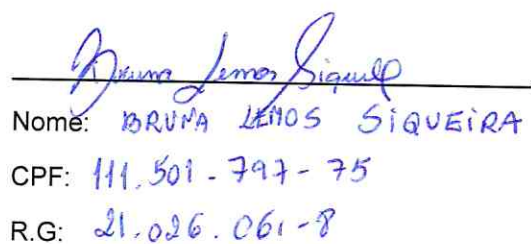 Bruna Lemos Siqueira
Nome: BRUNA LEMOS SIQUEIRA
CPF: 111.501-797-75
R.G: 21.026.061-8